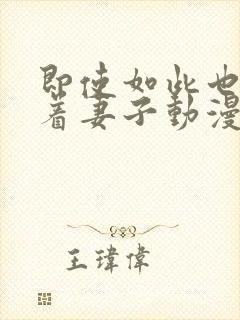 即使如此也
着妻子動漫
王瑋偉